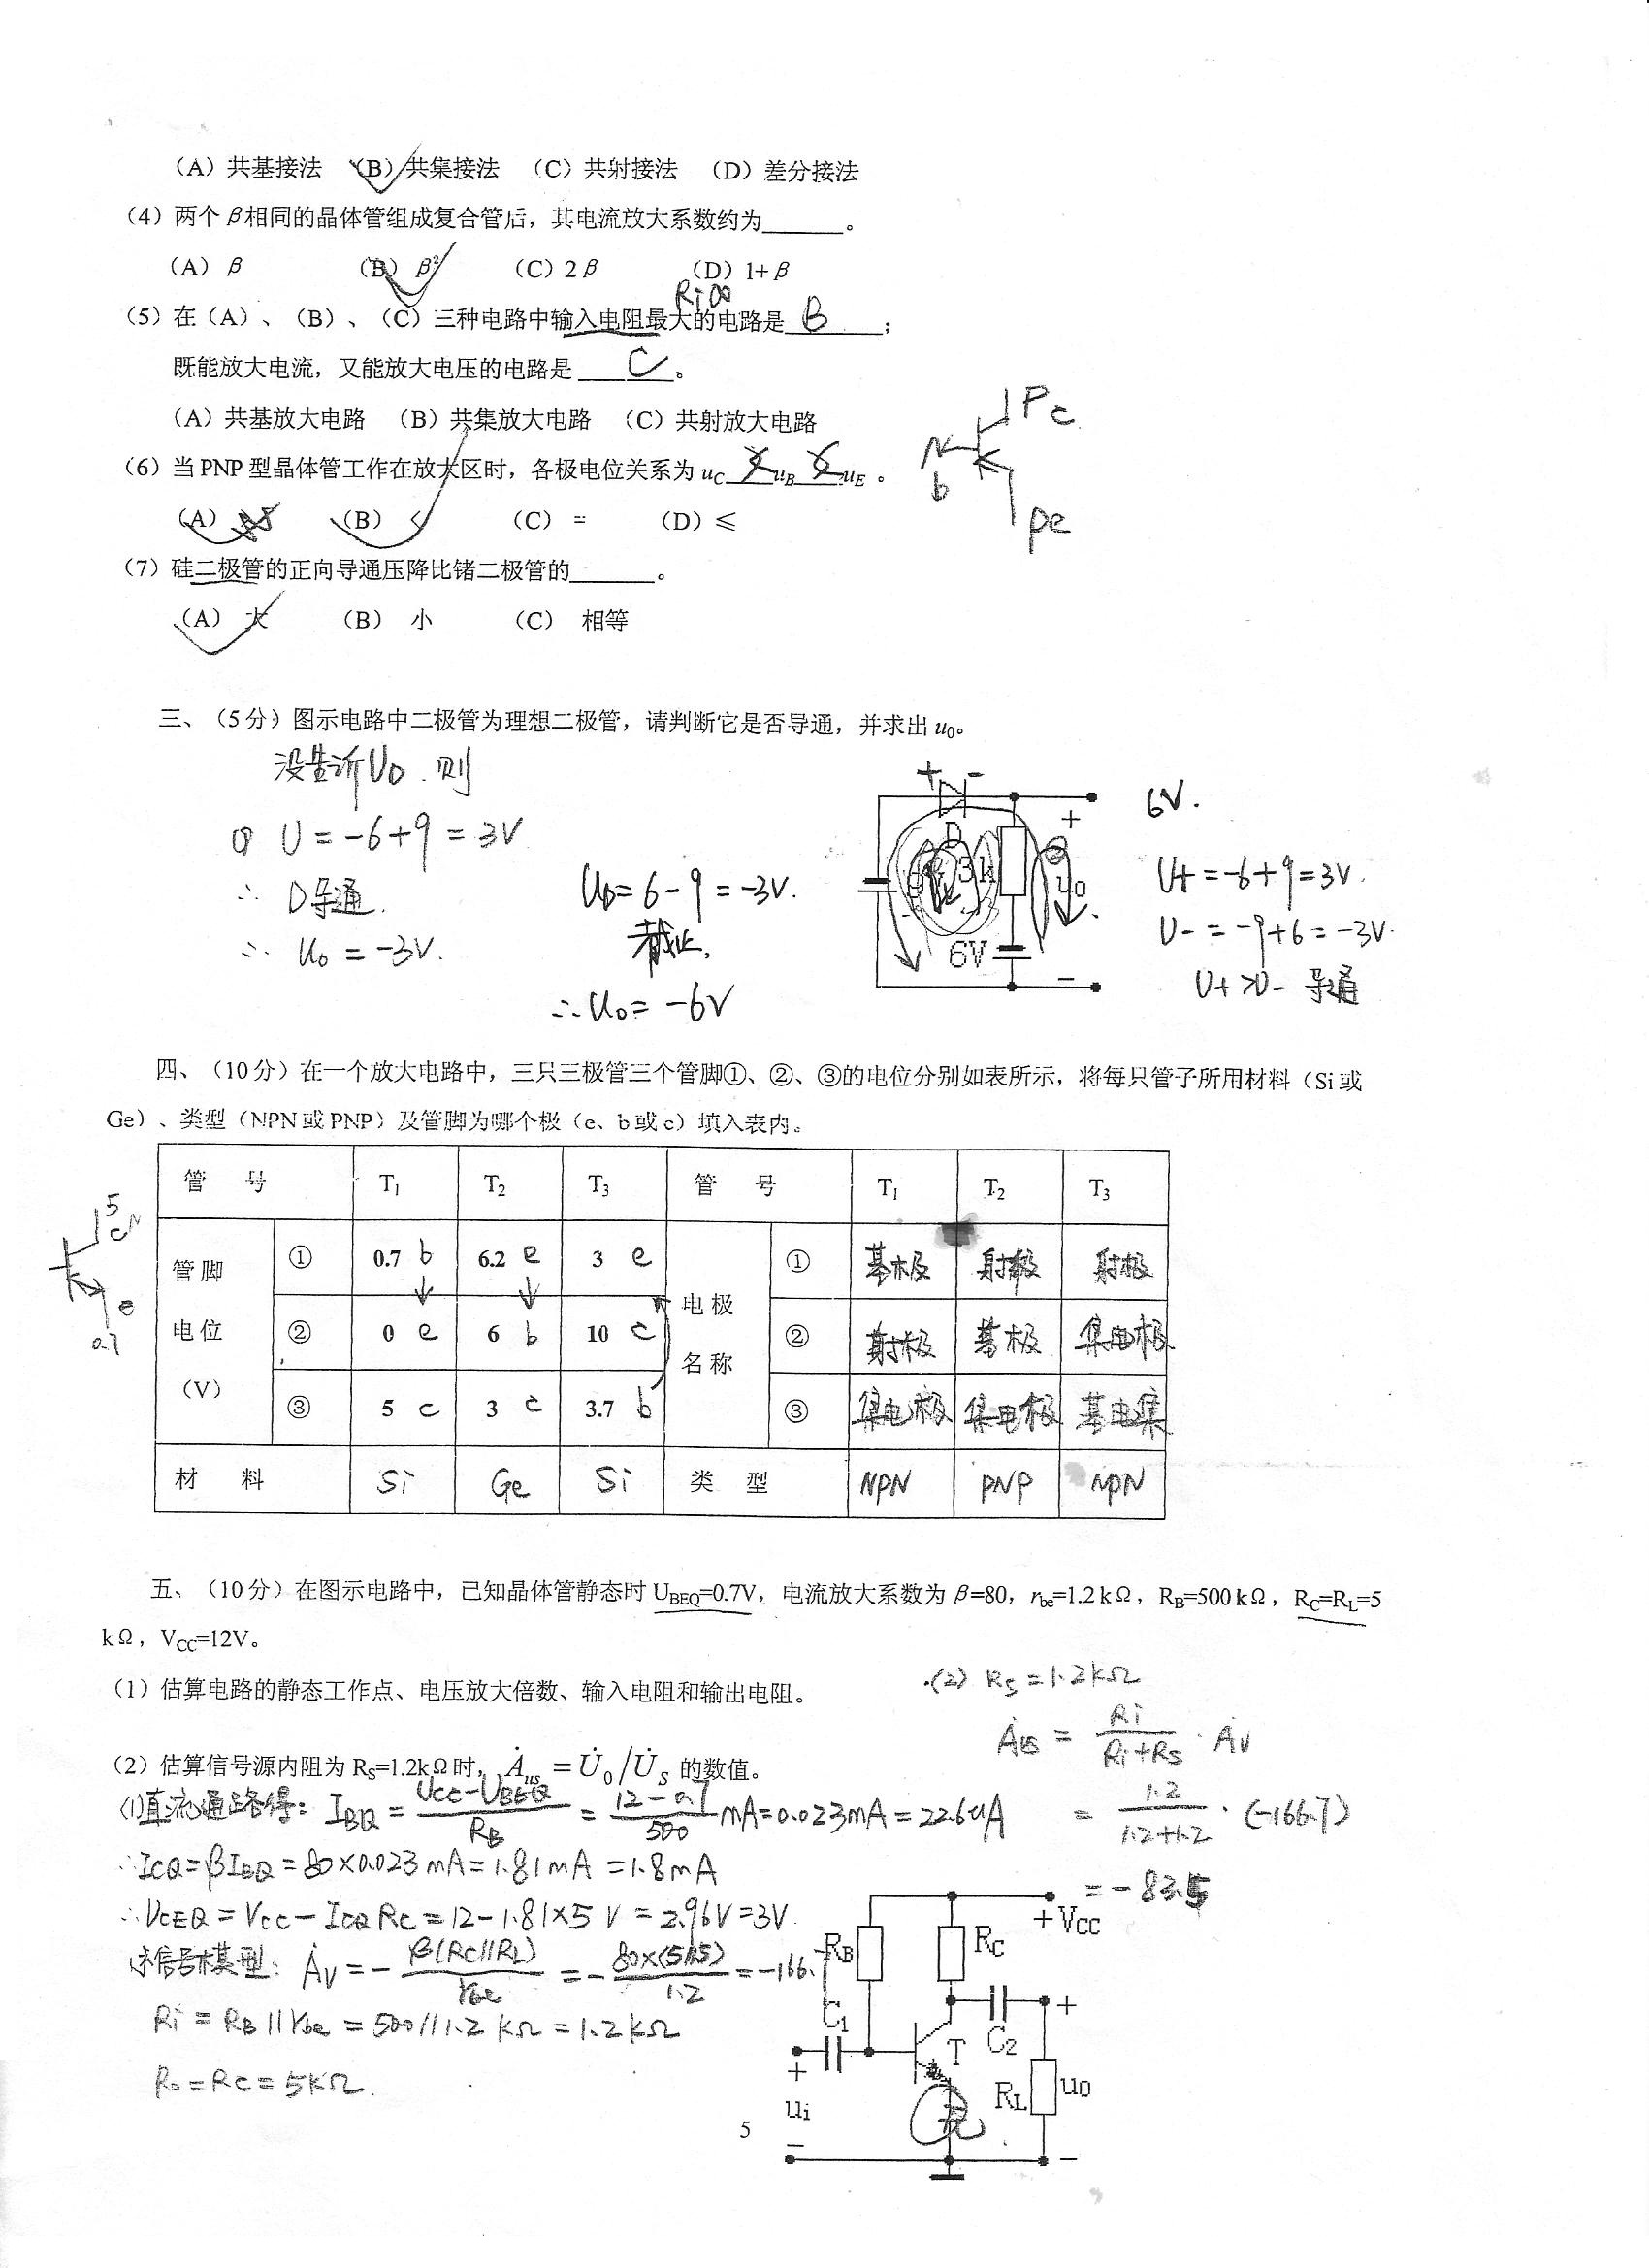 (A) 共基接法 (B) 共集接法 (C) 共射接法 (D) 差分接法
(4) 两个β相同的晶体管组成复合管后，其电流放大系数约为______。
(A) β (B) β² (C) 2β (D) 1+β
Ri∞
(5) 在(A)、(B)、(C)三种电路中输入电阻最大的电路是 B ；
既能放大电流，又能放大电压的电路是 C 。
(A) 共基放大电路 (B) 共集放大电路 (C) 共射放大电路
(6) 当PNP型晶体管工作在放大区时，各极电位关系为 uC uB uE 。
(A) (B) < (C) = (D) ≤
N b Pc Pe
(7) 硅二极管的正向导通压降比锗二极管的______。
(A) 大 (B) 小 (C) 相等
三、(5分) 图示电路中二极管为理想二极管，请判断它是否导通，并求出u0。
没告诉UD.则
U=-6+9=3V
∴ D导通.
∴ U0=-3V.
UD=6-9=-3V.
截止,
∴U0=-6V
+ -
D
+
3k
u0
6V
-
6V.
U+=-6+9=3V.
U-=-9+6=-3V.
U+>U- 导通
四、(10分) 在一个放大电路中，三只三极管三个管脚①、②、③的电位分别如表所示，将每只管子所用材料(Si或
Ge)、类型(NPN或PNP)及管脚为哪个极(e、b或c)填入表内。
管 号 T1 T2 T3 管 号 T1 T2 T3
管脚 ① 0.7 b 6.2 e 3 e ① 基极 射极 射极
电位 ② 0 e 6 b 10 c 电极 ② 射极 基极 集电极
(V) ③ 5 c 3 c 3.7 b 名称 ③ 集电极 集电极 基电集
材 料 Si Ge Si 类 型 NPN PNP NPN
5 c
e
0.7
五、(10分) 在图示电路中，已知晶体管静态时UBEQ=0.7V，电流放大系数为β=80，rbe=1.2kΩ，RB=500kΩ，RC=RL=5
kΩ，VCC=12V。
(1) 估算电路的静态工作点、电压放大倍数、输入电阻和输出电阻。
(2) 估算信号源内阻为RS=1.2kΩ时，Ȧus=U̇0/U̇S的数值。
(1)直流通路得: IBQ=(VCC-UBEQ)/RB=(12-0.7)/500 mA=0.023mA=22.6uA
∴ICQ=βIBQ=80×0.023mA=1.81mA=1.8mA
∴VCEQ=VCC-ICQRC=12-1.81×5 V=2.96V=3V.
信号模型: ȦV=-β(RC//RL)/rbe=-80×(5//5)/1.2=-166.7
Ri=RB//rbe=500//1.2 kΩ=1.2kΩ
Ro=RC=5kΩ.
(2) RS=1.2kΩ
Ȧus=Ri/(Ri+RS)·ȦV
=1.2/(1.2+1.2)·(-166.7)
=-83.5
+VCC
RB RC
C1 C2 +
T
+ RL uo
ui
- -
5